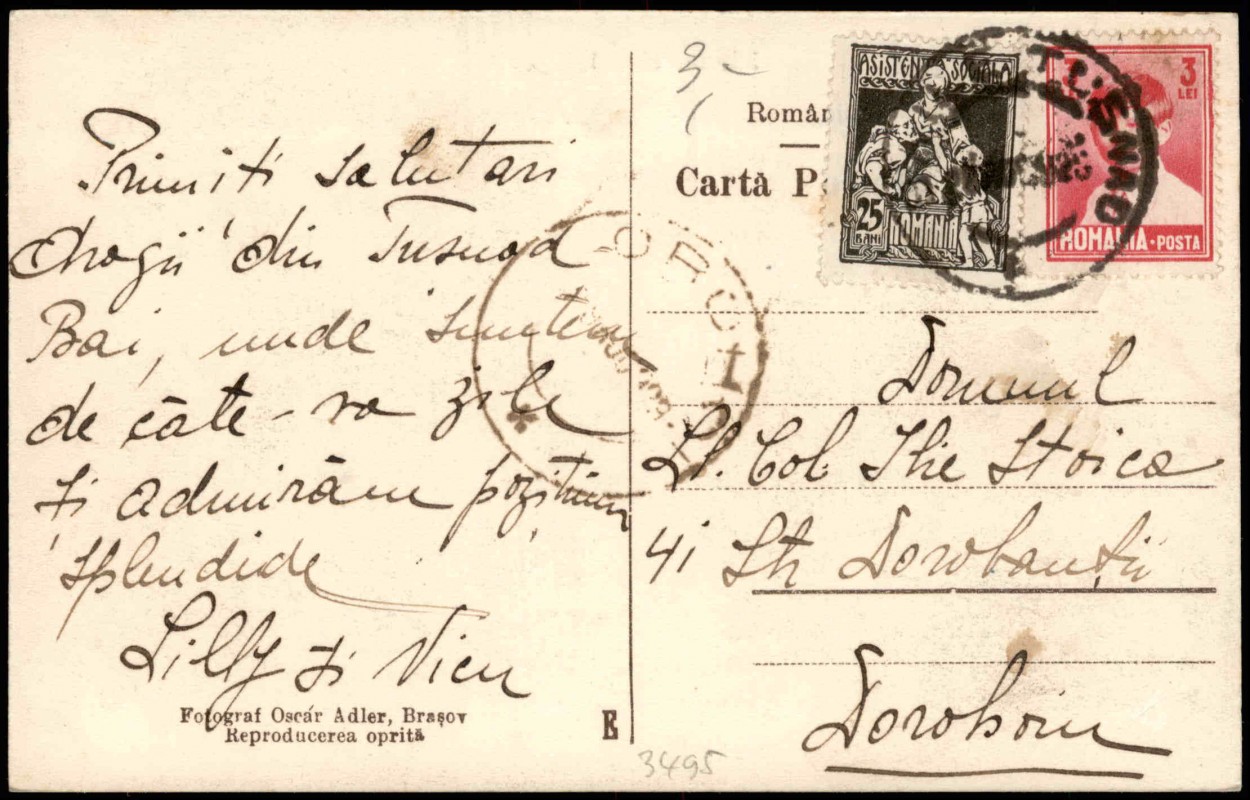 Primiti salutari
dragii din Tusnad
Bai, unde suntem
de câte-va zile
și admirăm pozițiuni
splendide
Lilly și Vicu
Fotograf Oscár Adler, Brașov
Reproducerea oprită
E
3495
3,-
Român
Cartă P
ASISTENȚA SOCIALA
25
BANI
ROMANIA
3
LEI
ROMANIA·POSTA
TUȘNAD
Domnul
Lt. Col Ilie Stoica
41 Str Dorobanții
Dorohoiu